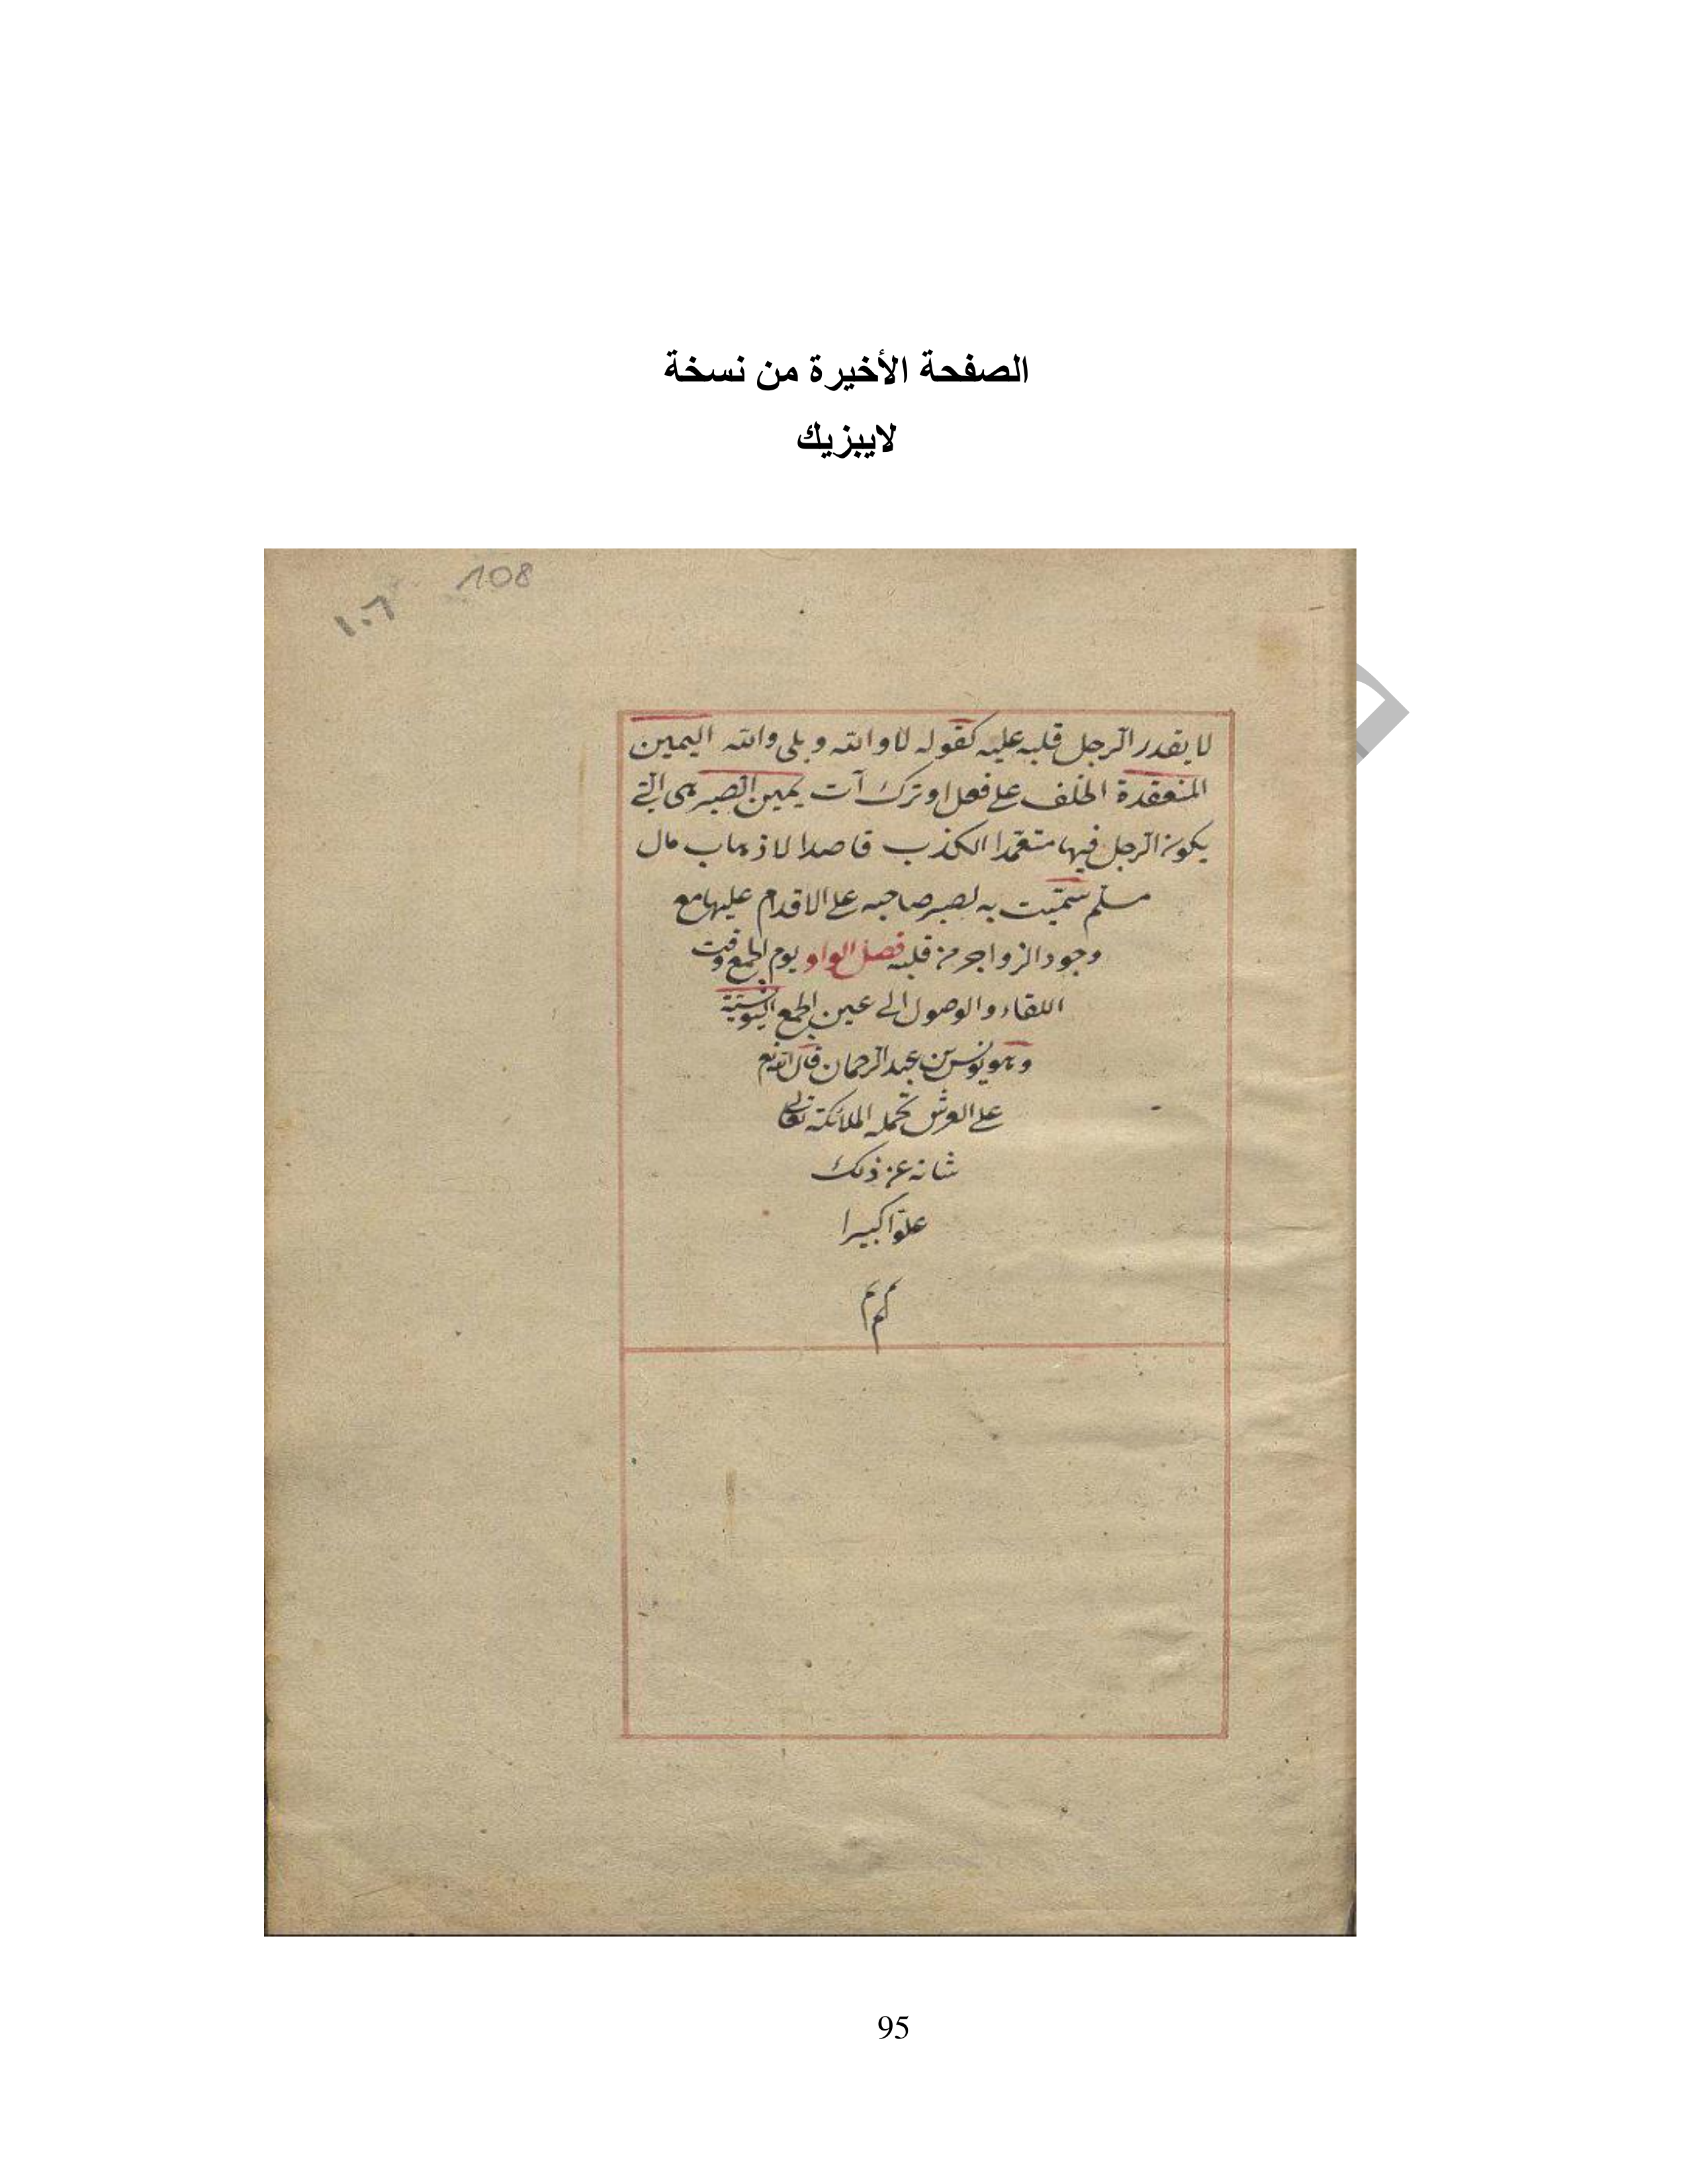 الصفحة الأخيرة من نسخة
لايبزيك
108
١٠٦
لا يقدر الرجل قلبه عليه كقوله لا والله وبلى والله اليمين
المنعقدة الحلف على فعل او ترك آت يمين الصبر هى التى
يكون الرجل فيها متعمدا الكذب قاصدا لاذهاب مال
مسلم سمّيت به لصبر صاحبه على الاقدام عليها مع
وجود الزواجر من قلبه فصل الواو يوم الجمع وقت
اللقاء والوصول الى عين الجمع اليونسيّة
وهو يونس بن عبد الرحمان قال الله تع
على العرش تحمله الملائكة تعالى
شانه عن ذلك
علوّا كبيرا
95